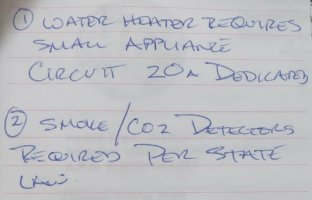 ① WATER HEATER REQUIRES
SMALL APPLIANCE
CIRCUIT 20A DEDICATED
② SMOKE/CO2 DETECTORS
REQUIRED PER STATE
LAW.